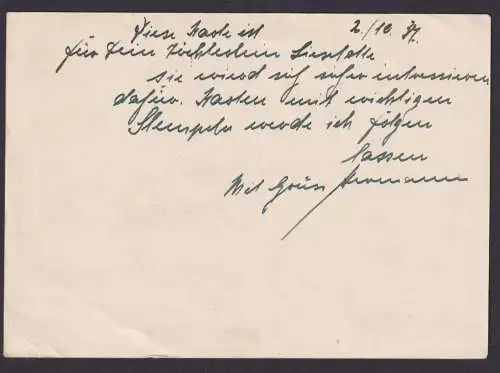 Diese Karte ist 2./10. 37.
für Dein Töchterlein Lieselotte
sie wird sich sehr interessieren
dafür. Karten mit wichtigen
Stempeln werde ich folgen
lassen
Mit Gruss Hermann